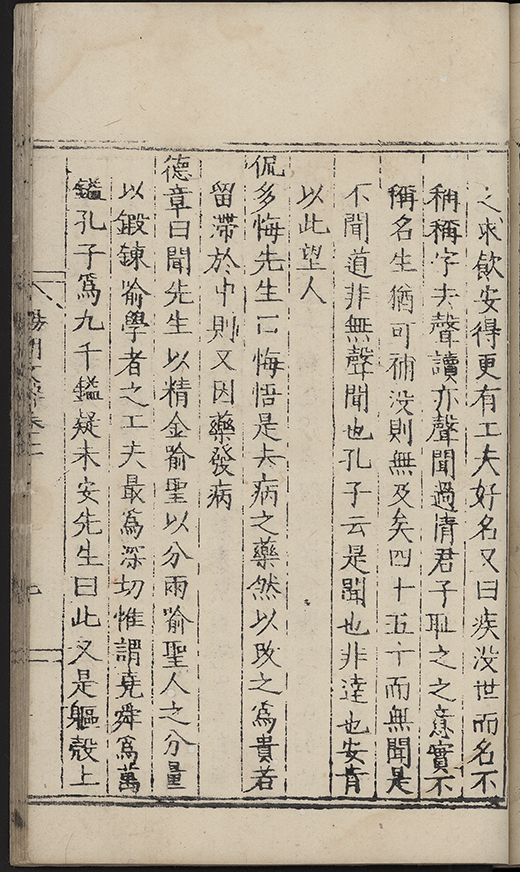 之求歟安得更有工夫好名又曰疾没世而名不
稱稱字去聲讀亦聲聞過情君子耻之之意實不
稱名生猶可補没則無及矣四十五十而無聞是
不聞道非無聲聞也孔子云是聞也非達也安肯
以此望人
侃多悔先生曰悔悟是去病之藥然以改之爲貴若
留滯於中則又因藥發病
德章曰聞先生以精金喻聖以分兩喻聖人之分量
以鍛鍊喻學者之工夫最爲深切惟謂堯舜爲萬
鎰孔子爲九千鎰疑未安先生曰此又是軀殻上